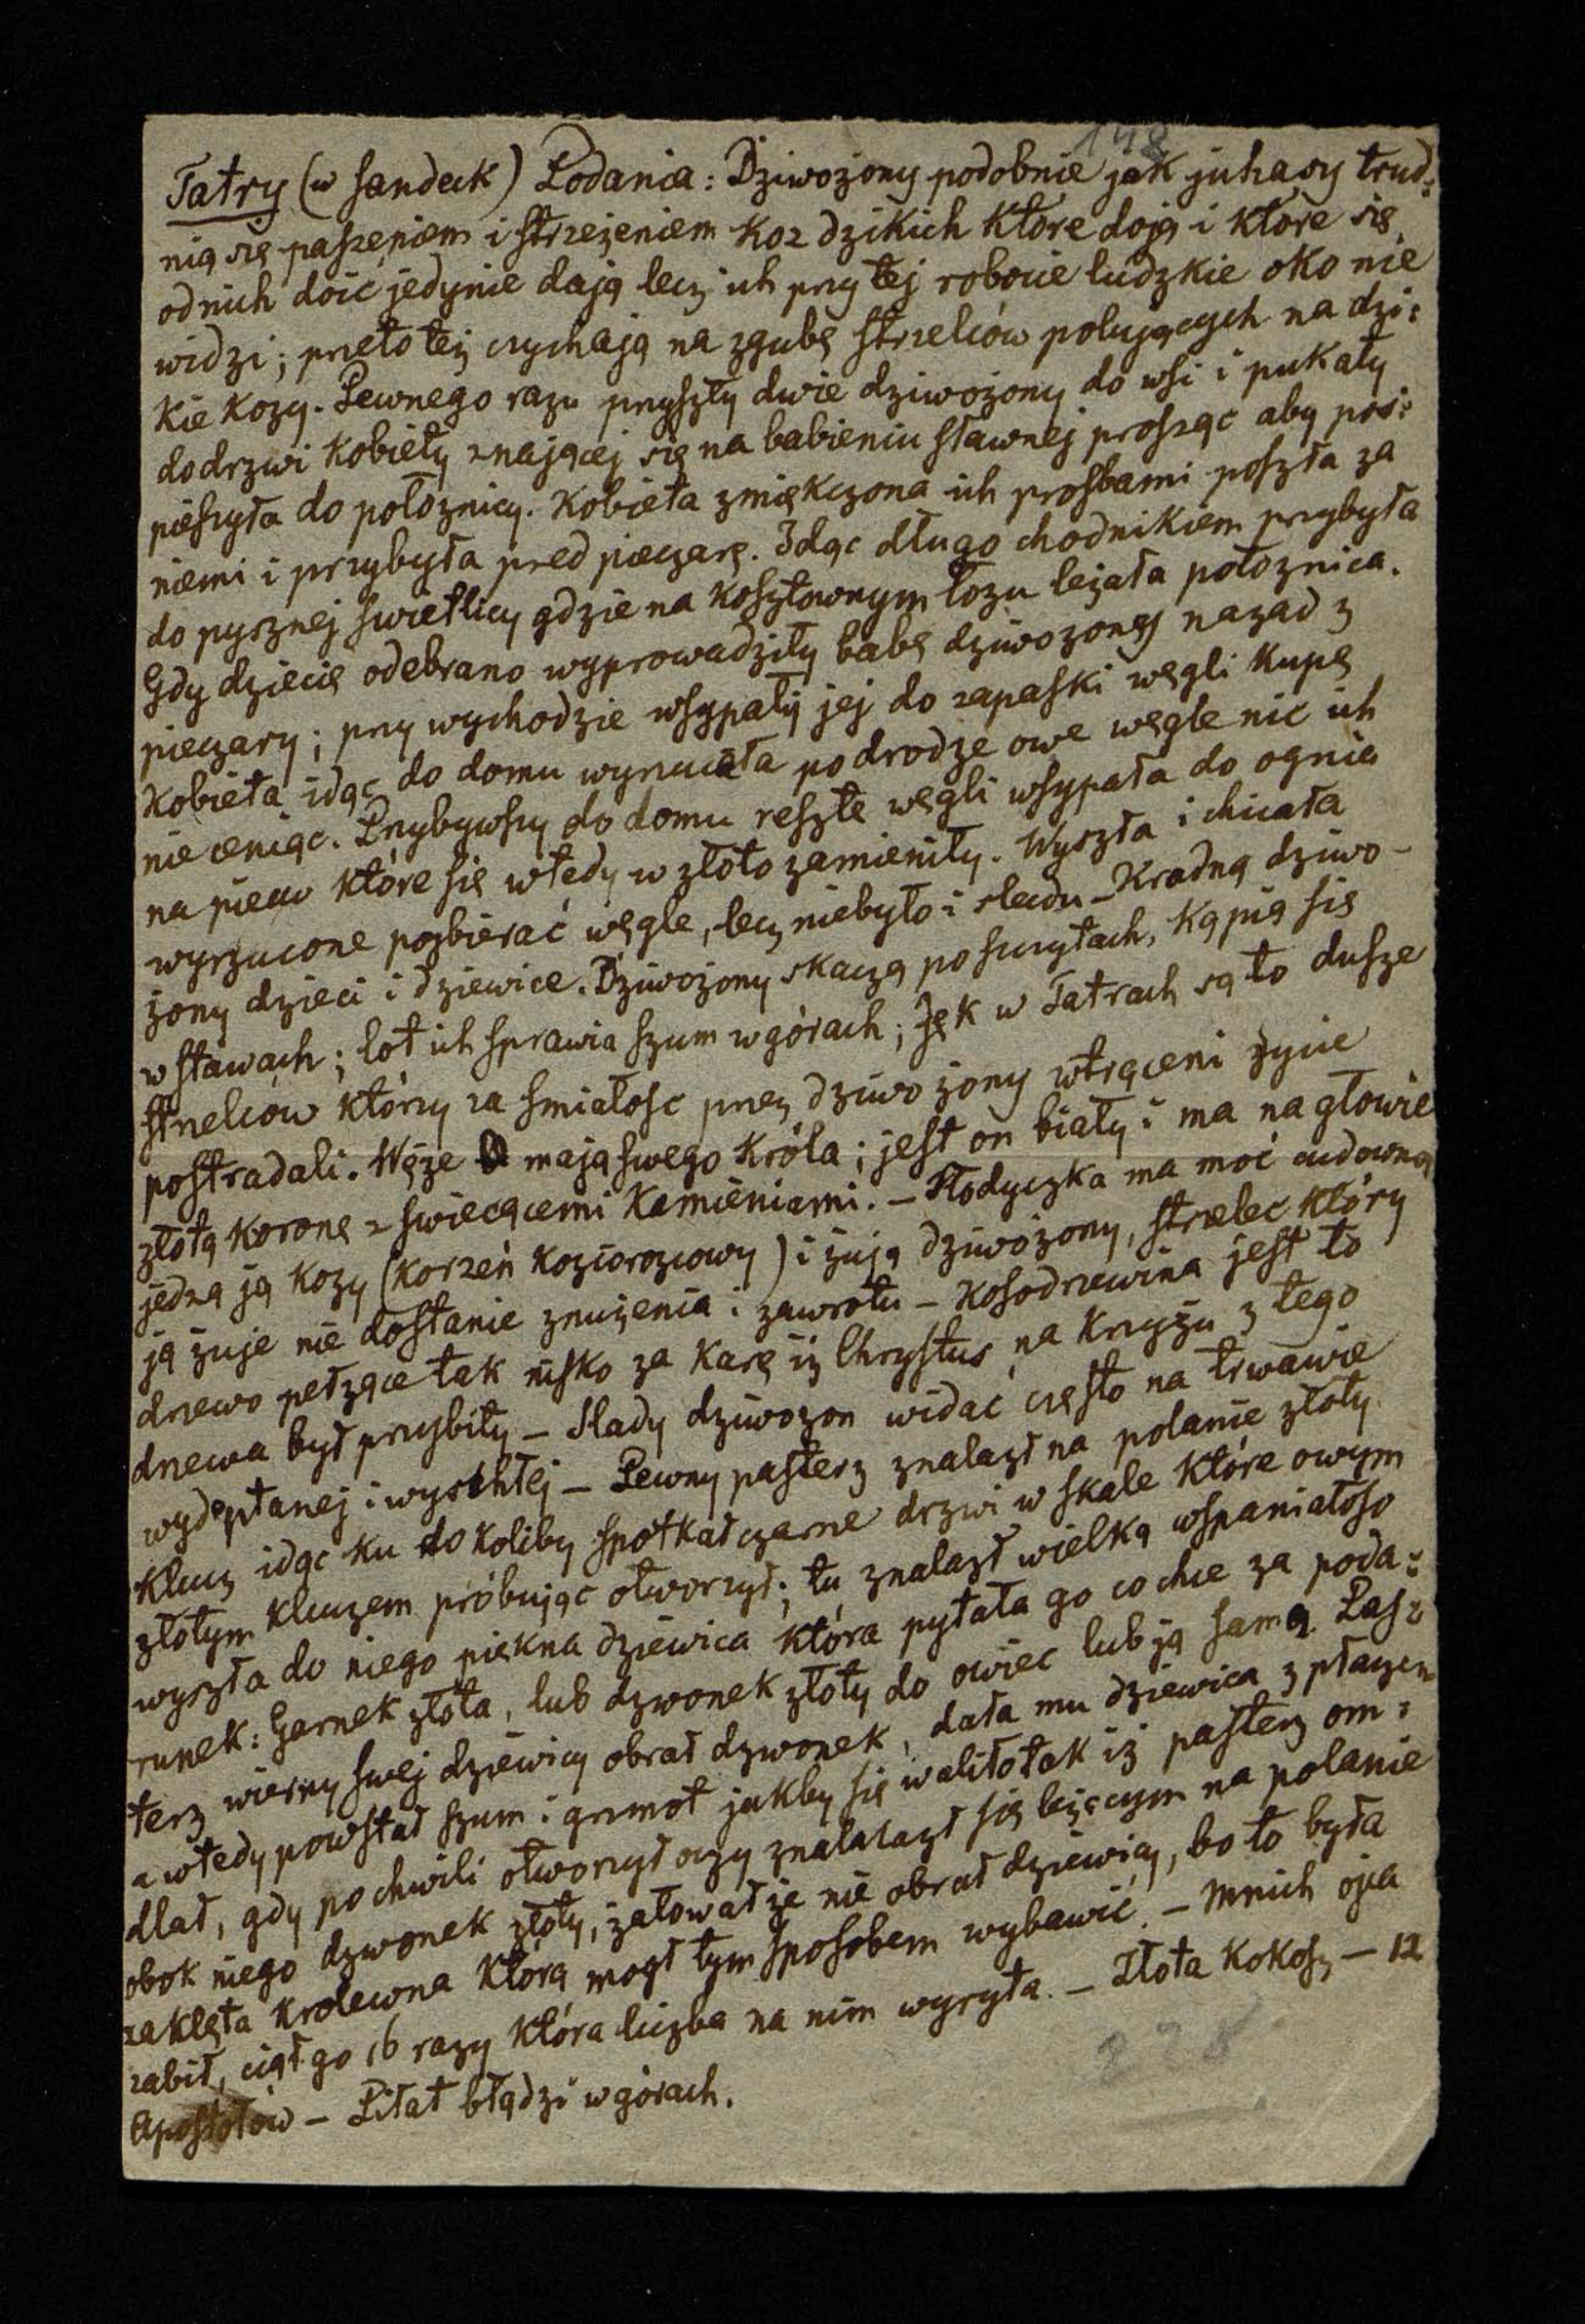 148
Tatry (w Sandeck) Podania: Dziwożony podobnie jak juhasy trud:
nią się paszeniem i strzeżeniem koz dzikich które doją i które się
od nich doić jedynie dają lecz ich przy tej robocie ludzkie oko nie
widzi; przeto też czychają na zgubę strzelców polujących na dzi:
kie kozy. Pewnego razu przyszły dwie dziwożony do wsi i pukały
do drzwi kobiety znającej się na babieniu sławnej prosząc aby pos:
pieszyła do położnicy. Kobieta zmiękczona ich prosbami poszła za
niemi i przybyła przed pieczarę. Idąc długo chodnikiem przybyła
do pysznej swietlicy gdzie na kosztownym łożu leżała położnica.
Gdy dziecię odebrano wyprowadziły babę dziwożony nazad z
pieczary; przy wychodzie wsypały jej do zapaski węgli kupę
Kobieta idąc do domu wyrzucała po drodze owe węgle nic ich
nie ceniąc. Przybywszy do domu resztę węgli wsypała do ognia
na piecu które się wtedy w złoto zamieniły. Wyszła i chciała
wyrzucone pozbierać węgle, lecz niebyło i sladu – Kradną dziwo-
żony dzieci i dziewice. Dziwożony skaczą po szczytach, kąpią się
w stawach; lot ich sprawia szum w górach; Jęk w Tatrach są to dusze
strzelców którzy za smiałosc przez dziwożony wtrąceni życie
postradali. Węże mają swego króla; jest on biały i ma na głowie
złotą koronę z swiecącemi kamieniami. – Słodyczka ma moc cudowną
jedzą ją kozy (korzeń koziorożcowy) i żują dziwożony, strzelec który
ją żuje nie dostanie znużenia i zawrotu – Kosodrzewina jest to
drzewo pełzące tak nisko za karę iż Chrystus na krzyżu z tego
drzewa był przybity – Slady dziwożon widać często na trwawie
wydeptanej i wyschłej – Pewny pasterz znalazł na polanie złoty
klucz idąc ku do koliby spotkał czarne drzwi w skale które owym
złotym kluczem próbując otworzył; tu znalazł wielką wspaniałosc
wyszła do niego piękna dziewica która pytała go co chce za poda:
runek: Garnek złota, lub dzwonek złoty do owiec lub ją samą. Pas:
terz wierny swej dziewicy obrał dzwonek, dała mu dziewica z płaczem
a wtedy powstał szum i grzmot jakby się waliło tak iż pasterz om:
dlał, gdy po chwili otworzył oczy znalalazł się leżącym na polanie
obok niego dzwonek złoty, żałował że nie obrał dziewicy, bo to była
zaklęta krolewna którą mogł tym sposobem wybawić. – Mnich ojca
zabił, ciął go 16 razy która liczba na nim wyryta. – Złota kokosz – 12
Apostołów – Piłat błądzi w górach.
228